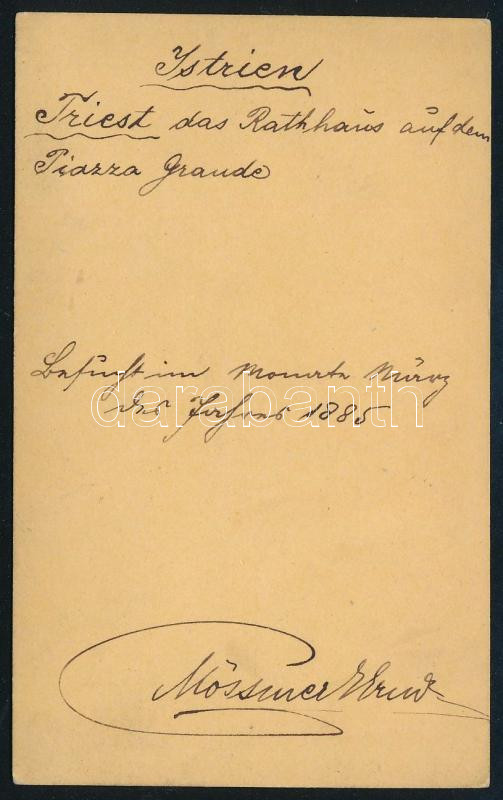 Istrien
Triest das Rathhaus auf dem
Piazza Grande
Besucht im Monate März
des Jahres 1885
darabanth
Mössmer